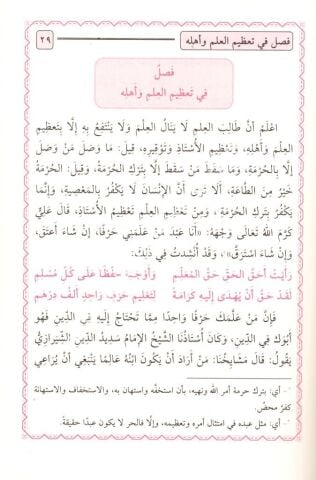 فصل في تعظيم العلم وأهله
٢٩
فصلٌ
في تَعظيمِ العِلمِ وأَهلِه
اعْلَمْ أنَّ طَالِبَ العِلمِ لَا يَنَالُ العِلْمَ وَلَا يَنْتَفِعُ بِهِ إلَّا بِتَعظِيمِ
العِلْمِ وَأَهْلِهِ، وَتَعْظِيمِ الأُسْتَاذِ وَتَوْقِيرِهِ، قِيلَ: مَا وَصَلَ مَنْ وَصَلَ
إلَّا بِالحُرْمَةِ، وَمَا سَقَطَ مَنْ سَقَطَ إلَّا بِتَركِ الحُرْمَةِ، وَقِيلَ: الحُرْمَةُ
خَيْرٌ مِنَ الطَّاعَةِ، أَلَا تَرَى أَنَّ الإِنْسَانَ لَا يَكْفُرُ بِالمَعْصِيةِ، وَإنَّمَا
يَكْفُرُ بِتَركِ الحُرْمَةِ، وَمِنْ تَعْظِيمِ العِلْمِ تَعْظِيمُ الأُسْتَاذِ، قَالَ عَلِيٌّ
كَرَّمَ اللهُ تَعَالَى وَجْهَهُ: «أنَا عَبدُ مَنْ عَلَّمَنِي حَرْفًا، إنْ شَاءَ أَعتَقَ،
وَإنْ شَاءَ اسْتَرَقَّ»، وَقَدْ أُنْشِدتُ فِي ذَلِكَ:
رَأيتُ أحَقَّ الحَقِّ حَقَّ المُعَلِّمِ وَأَوْجَبَهُ حِفْظًا عَلَى كُلِّ مُسْلِمِ
لَقَدْ حَقَّ أَنْ يُهْدَى إلَيهِ كَرَامَةً لِتَعْلِيمِ حَرفٍ وَاحِدٍ أَلْفُ دِرْهَمِ
فَإنَّ مَنْ عَلَّمَكَ حَرْفًا وَاحِدًا مِمَّا تَحْتَاجُ إلَيهِ فِي الدِّينِ فَهُوَ
أبُوْكَ فِي الدِّينِ، وَكَانَ أُسْتَاذُنَا الشَّيْخُ الإمَامُ سَدِيدُ الدِّينِ الشِّيرَازِيُّ
يَقُولُ: قَالَ مَشَايِخُنَا: مَنْ أَرَادَ أَنْ يَكُونَ ابْنُهُ عَالِمًا يَنْبَغِي أَنْ يُرَاعِيَ
- أي: بترك حرمة أمر الله ونهيه، بأن استخفَّه واستهان به، والاستخفاف والاستهانة
كفرٌ محضٌ.
- أي: مثل عبده في امتثال أمره وتعظيمه، وإلّا فالحر لا يكون عبدًا حقيقةً.